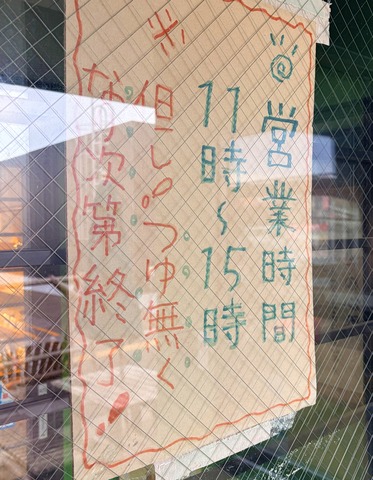 ◎営業時間
11時〜15時
※但し。つゆ無く
なり次第終了!